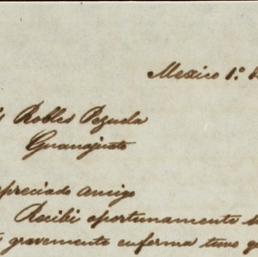 Mexico 1º.
Robles Pezuela
Guanajuato
preciado amigo
Recibi oportunamente
gravemente enferma tuvo